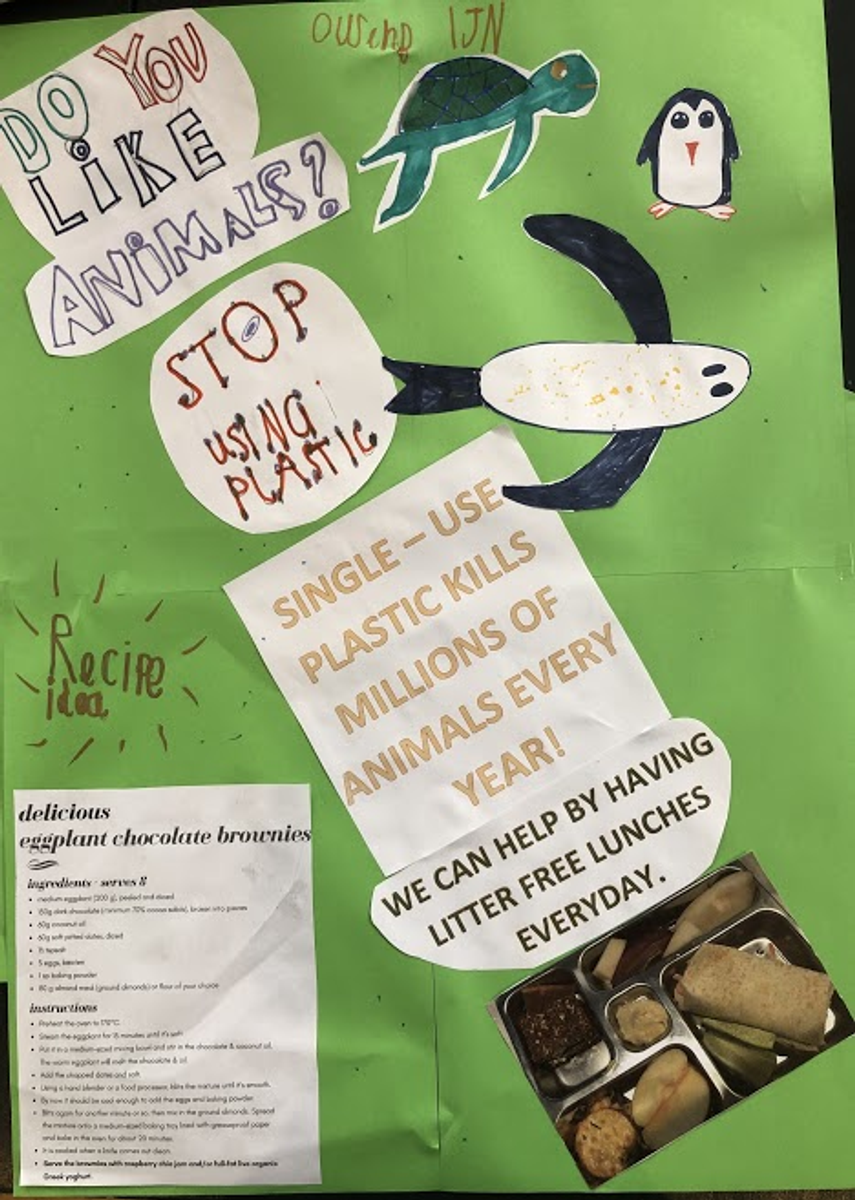 IJN
DO YOU
LIKE
ANIMALS?
STOP
USING
PLASTIC
SINGLE – USE
PLASTIC KILLS
MILLIONS OF
ANIMALS EVERY
YEAR!
WE CAN HELP BY HAVING
LITTER FREE LUNCHES
EVERYDAY.
Recipe
idea
delicious
eggplant chocolate brownies
ingredients - serves 8
medium eggplant (200 g), peeled and diced
dark chocolate (minimum 70% cocoa solids), broken into pieces
60g coconut oil
60g soft pitted dates, diced
5 eggs, beaten
1 tsp baking powder
80 g almond meal (ground almonds) or flour of your choice
instructions
Preheat the oven to 170°C.
Steam the eggplant for 15 minutes until it's soft
Put it in a medium-sized mixing bowl and stir in the chocolate & coconut oil,
the warm eggplant will melt the chocolate & oil.
Add the chopped dates and salt.
Using a hand blender or a food processor, blitz the mixture until it's smooth.
By now it should be cool enough to add the eggs and baking powder.
Blitz again for another minute or so, then mix in the ground almonds. Spread
the mixture onto a medium-sized baking tray lined with greaseproof paper
and bake in the oven for about 20 minutes.
It is cooked when a knife comes out clean.
Serve the brownies with raspberry chia jam and/or full-fat live organic
Greek yoghurt.